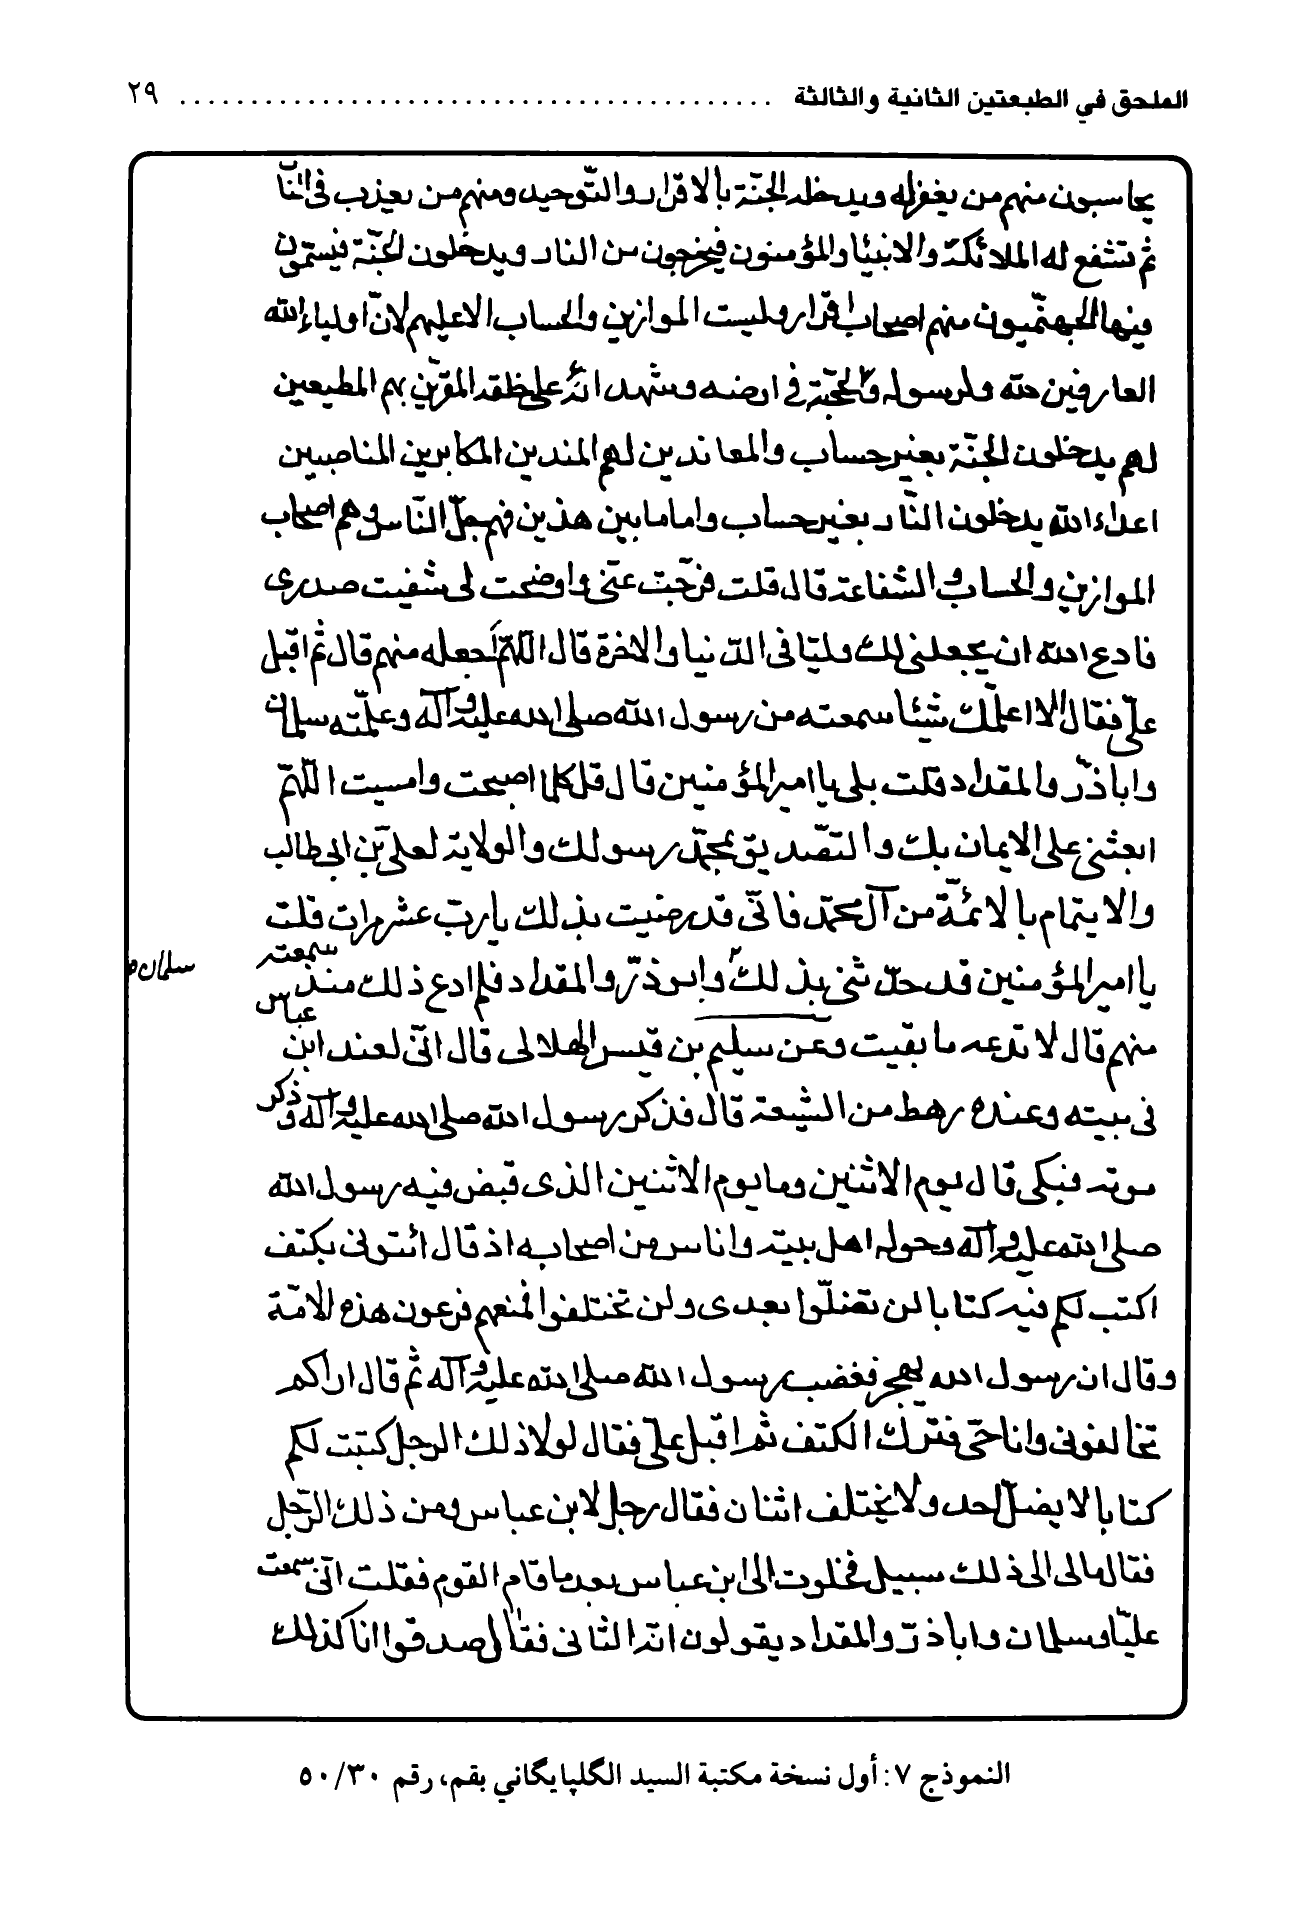 الملحق في الطبعتين الثانية والثالثة ........................................ ٢٩
يحاسبون منهم من يغفر له ويدخله الجنّة بالاقرار والتّوحيد ومنهم من يعذب في النّا
ثم تشفع له الملائكة والانبيا والمؤمنون فيخرجون من النار ويدخلون الجنّة فيستمون
فيها الجهنّميون منهم اصحاب اقرار وليست الموازين والحساب الا عليهم لانّ اولياء الله
العارفين لله ولرسوله والحجّة في ارضه وشهدائه على خلقه المقرّين بهم المطيعين
لهم يدخلون الجنّة بغير حساب والمعاندين لهم المندين المكابرين المناصبين
اعداء الله يدخلون النّار بغير حساب واما ما بين هذين فهم جلّ النّاس وهم اصحاب
الموازين والحساب والشفاعة قال قلت فرّجت عنّى واوضحت لى شفيت صدرى
فادع الله ان يجعلنى لك وليّا فى الدّنيا والاخرة قال اللهمّ اجعله منهم قال ثمّ اقبل
علىّ فقال الا اعلّمك شيئا سمعته من رسول الله صلى الله عليه وآله وعلّمته سلمان
واباذرّ والمقداد قلت بلى يا امير المؤمنين قال قل كلما اصبحت وامسيت اللهمّ
ابعثنى على الايمان بك والتصديق بمحمّد رسولك والولاية لعلى بن ابى طالب
والايتمام بالائمّة من آل محمّد فانّى قد رضيت بذلك يا ربّ عشر مرات قلت
يا امير المؤمنين قد حدّثنى بذلك وابوذرّ والمقداد فلم ادع ذلك منذ سمعته
سلمان
منهم قال لا تدعه ما بقيت وعن سليم بن قيس الهلالى قال انّى لعند ابن عباس
فى بيته وعنده رهط من الشيعة قال فذكر رسول الله صلى الله عليه وآله وذكر
موته فبكى قال يوم الاثنين وما يوم الاثنين الذى قبض فيه رسول الله
صلى الله عليه وآله وحوله اهل بيته واناس من اصحابه اذ قال ائتونى بكتف
اكتب لكم فيه كتابا لن تضلّوا بعدى ولن تختلفوا فمنعهم فرعون هذه الامّة
وقال ان رسول الله يهجر فغضب رسول الله صلى الله عليه وآله ثمّ قال اراكم
تخالفونى وانا حىّ فترك الكتف ثم اقبل علىّ فقال لولا ذلك الرجل كتبت لكم
كتابا لا يضلّ احد ولا يختلف اثنان فقال رجل لابن عباس ومن ذلك الرّجل
فقال مالى الى ذلك سبيل فخلوت الى ابن عباس بعد ما قام القوم فقلت انّى سمعت
عليّا وسلمان واباذرّ والمقداد يقولون انّه الثانى فقال صدقوا انا كذلك
النموذج ٧: أول نسخة مكتبة السيد الگلپايگاني بقم، رقم ٥٠/٣٠